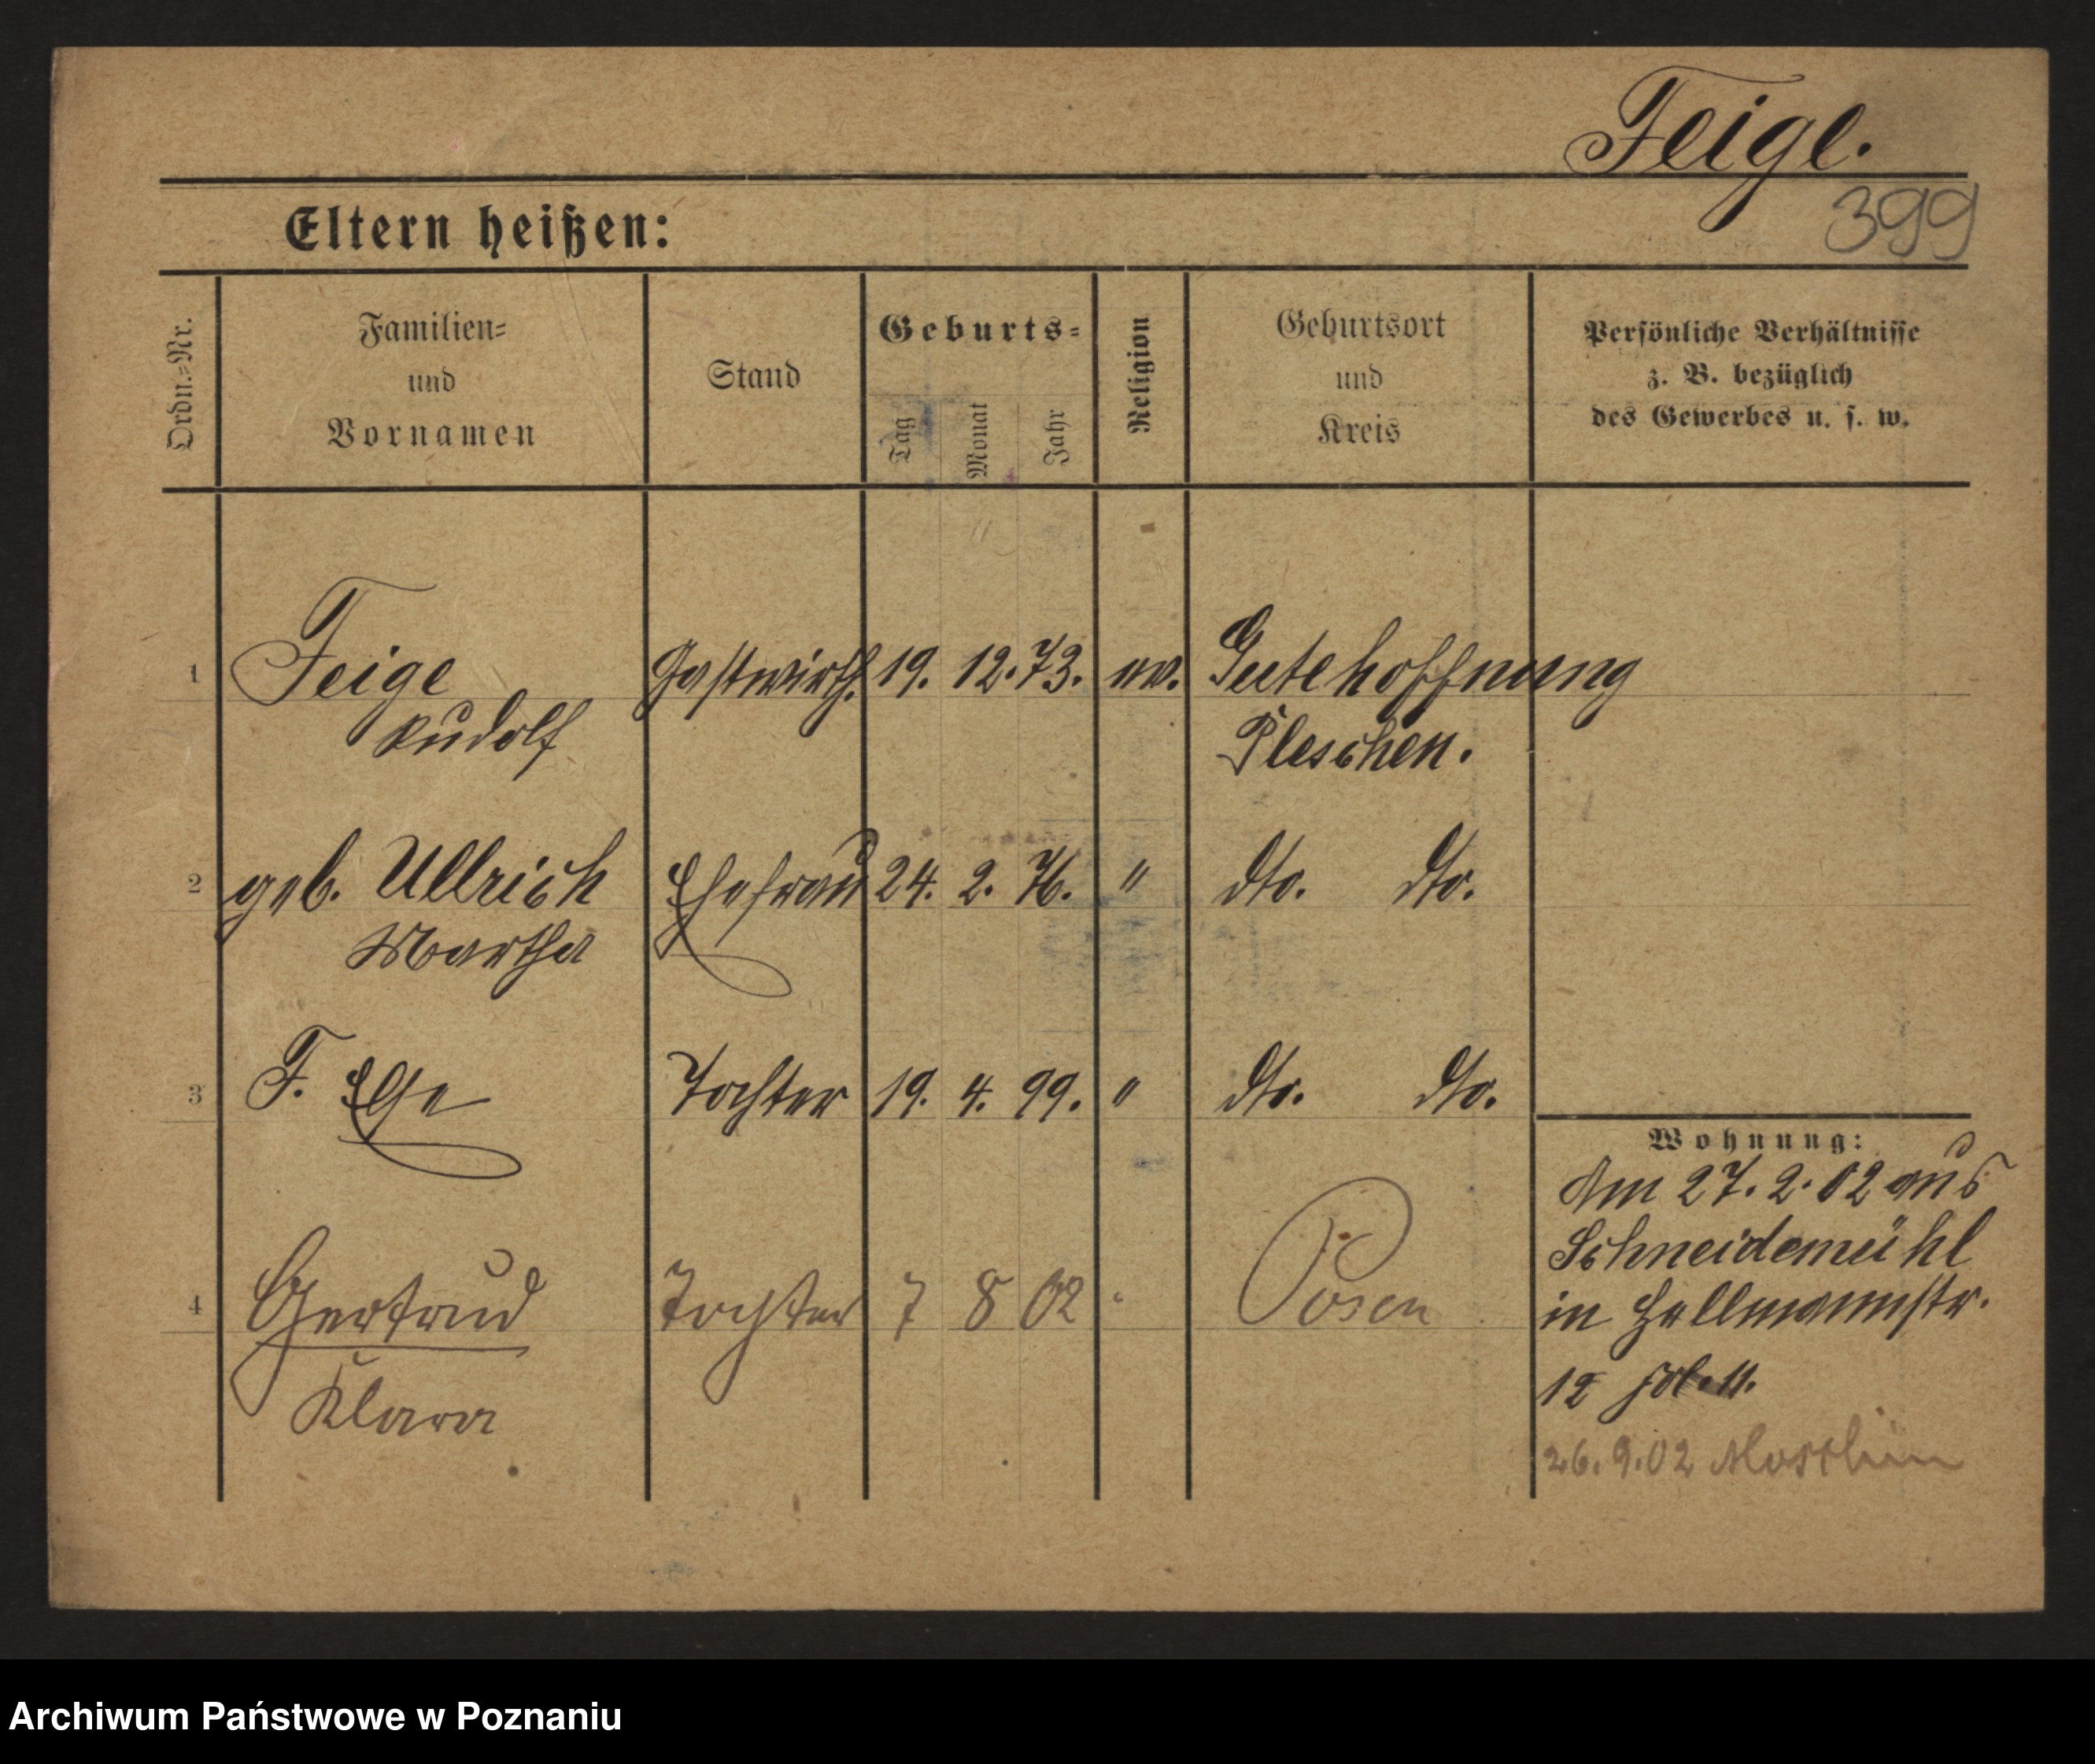 Feige.
399
Eltern heißen:
Ordn.=Nr.
Familien=
und
Vornamen
Stand
Geburts=
Tag
Monat
Jahr
Religion
Geburtsort
und
Kreis
Persönliche Verhältnisse
z. B. bezüglich
des Gewerbes u. s. w.
1 Feige Gastwirth. 19. 12. 73. ev. Gutehoffnung
Rudolf Pleschen.
2 geb. Ullrich Ehefrau 24. 2. 76. " dto. dto.
Martha
3 F. Else Tochter 19. 4. 99. " dto. dto.
Wohnung:
Am 27. 2. 02 aus
Schneidemühl
4 Gertrud Tochter 7 8 02 " Posen
in Hellmannstr.
Klara
12
26. 9. 02
Archiwum Państwowe w Poznaniu